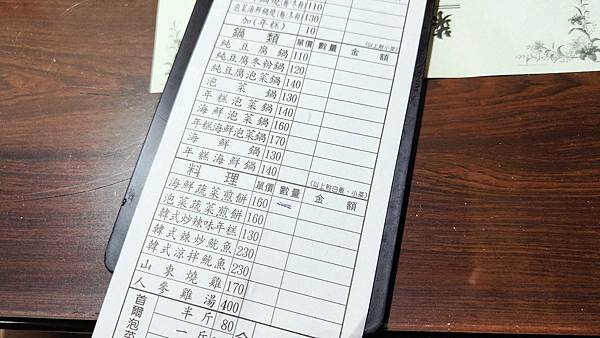 泡菜海鮮鍋燒(麵・冬粉) 130
加(年糕) 10
鍋類 單價 數量 (以上附小菜) 金額
純豆腐鍋 110
純豆腐冬粉鍋 120
純豆腐泡菜鍋 140
泡菜鍋 130
年糕泡菜鍋 140
海鮮泡菜鍋 160
年糕海鮮泡菜鍋 170
海鮮鍋 130
年糕海鮮鍋 140
料理 單價 數量 (以上附白飯、小菜) 金額
海鮮蔬菜煎餅 160
泡菜蔬菜煎餅 160
韓式炒辣味年糕 130
韓式辣炒魷魚 230
韓式涼拌魷魚 230
山東燒雞 170
人參雞湯 400
首爾泡菜 半斤 80
一斤